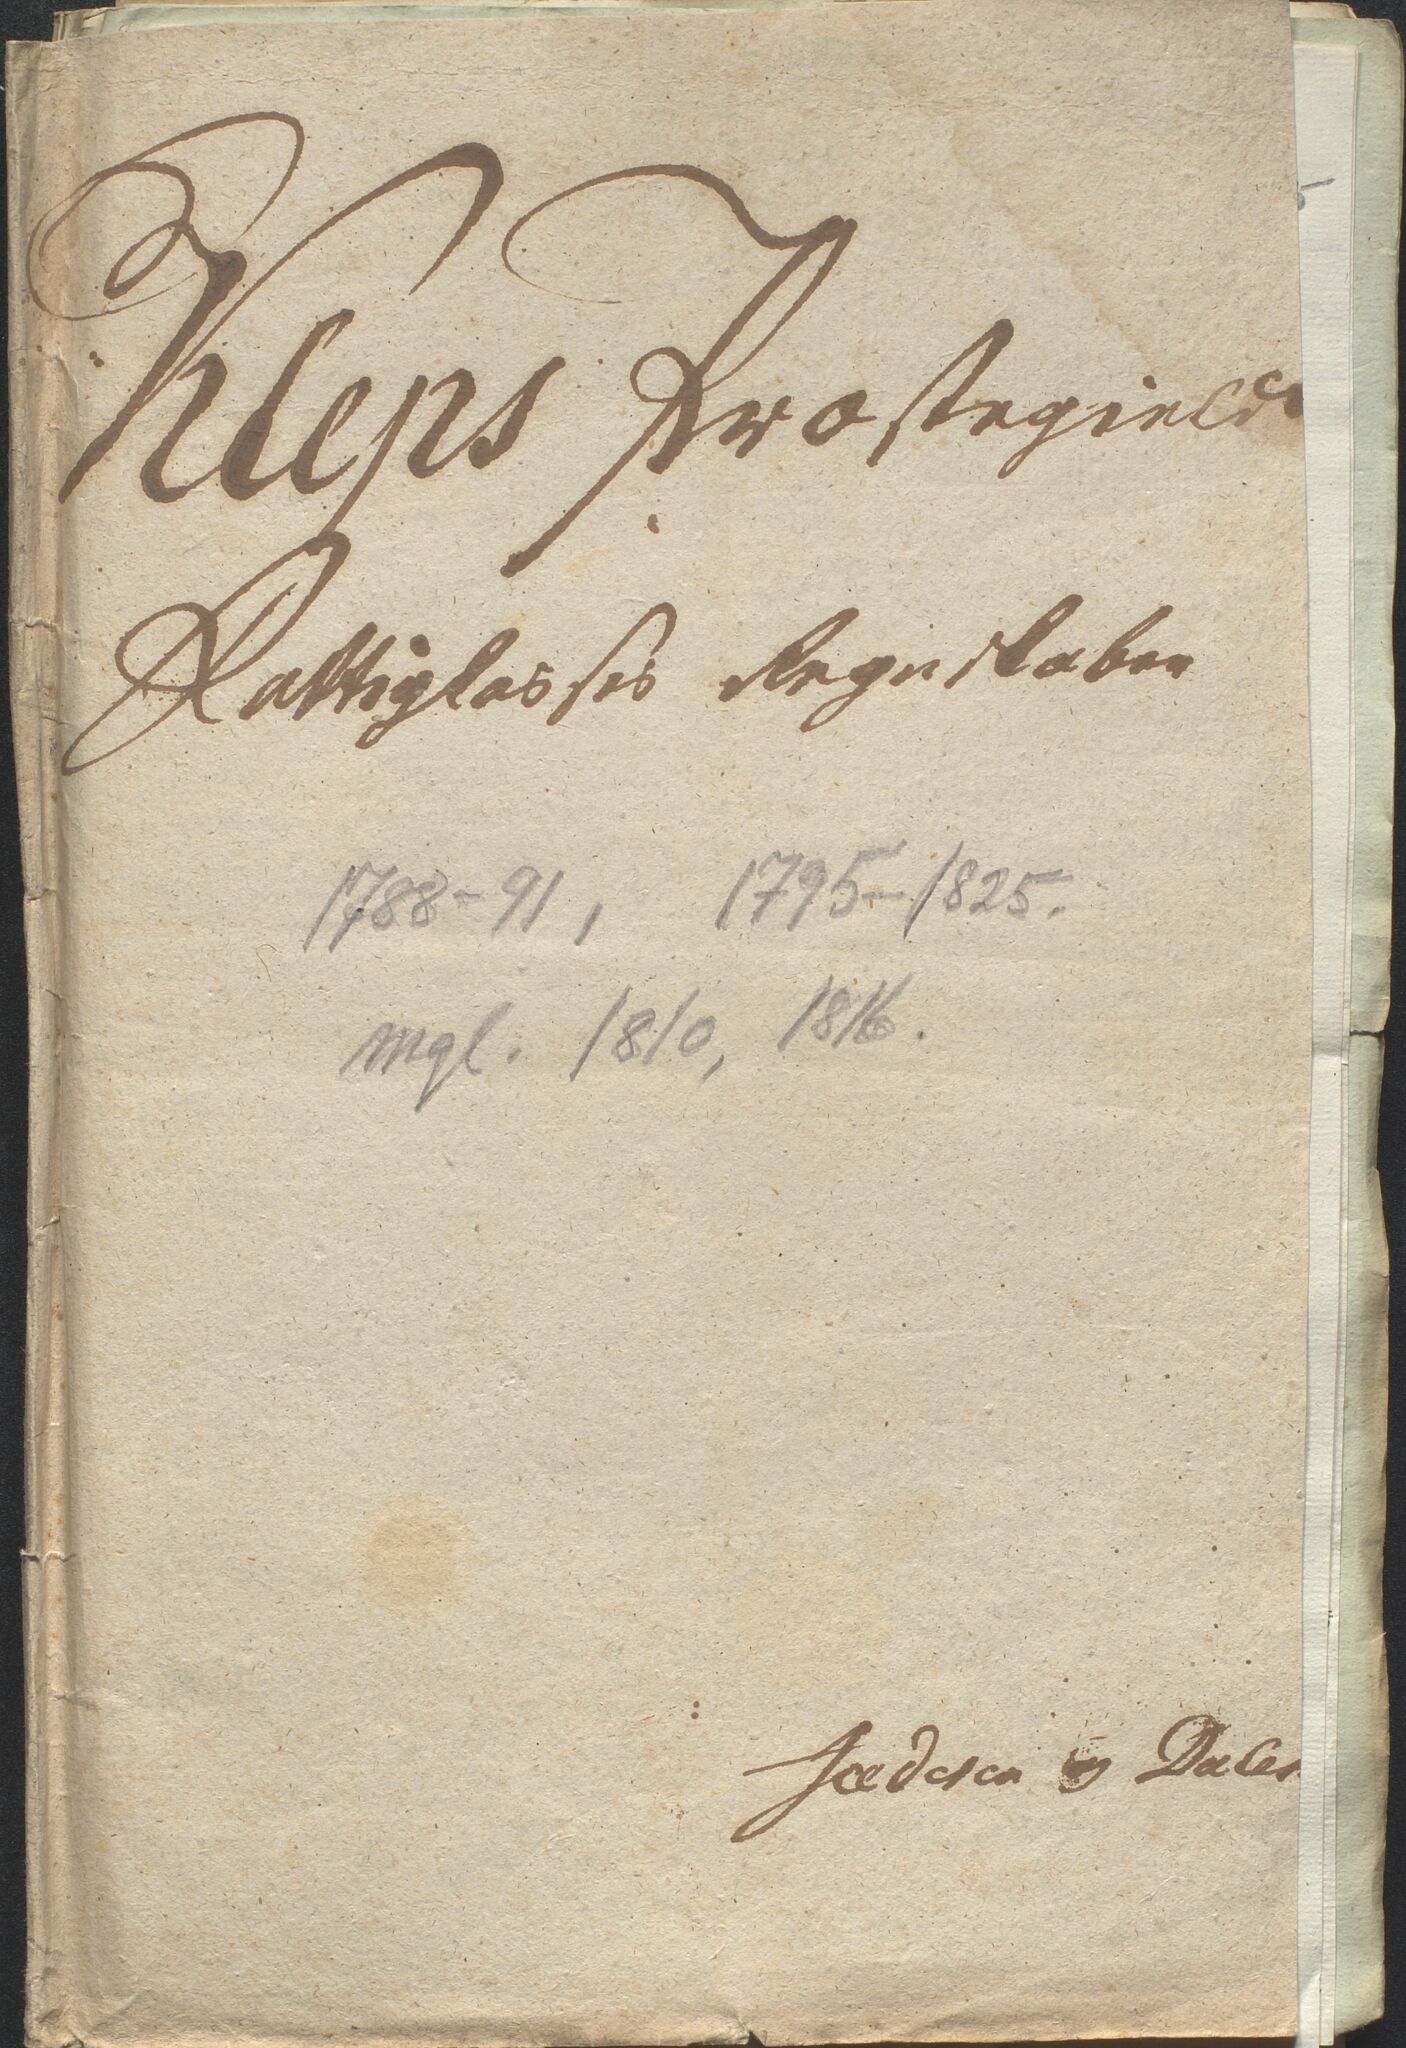 Kleps Præstegields
Fattiglasses Regnskaber
1788-91, 1795-1825.
mgl. 1810, 1816.
Jæderen og Dalerne